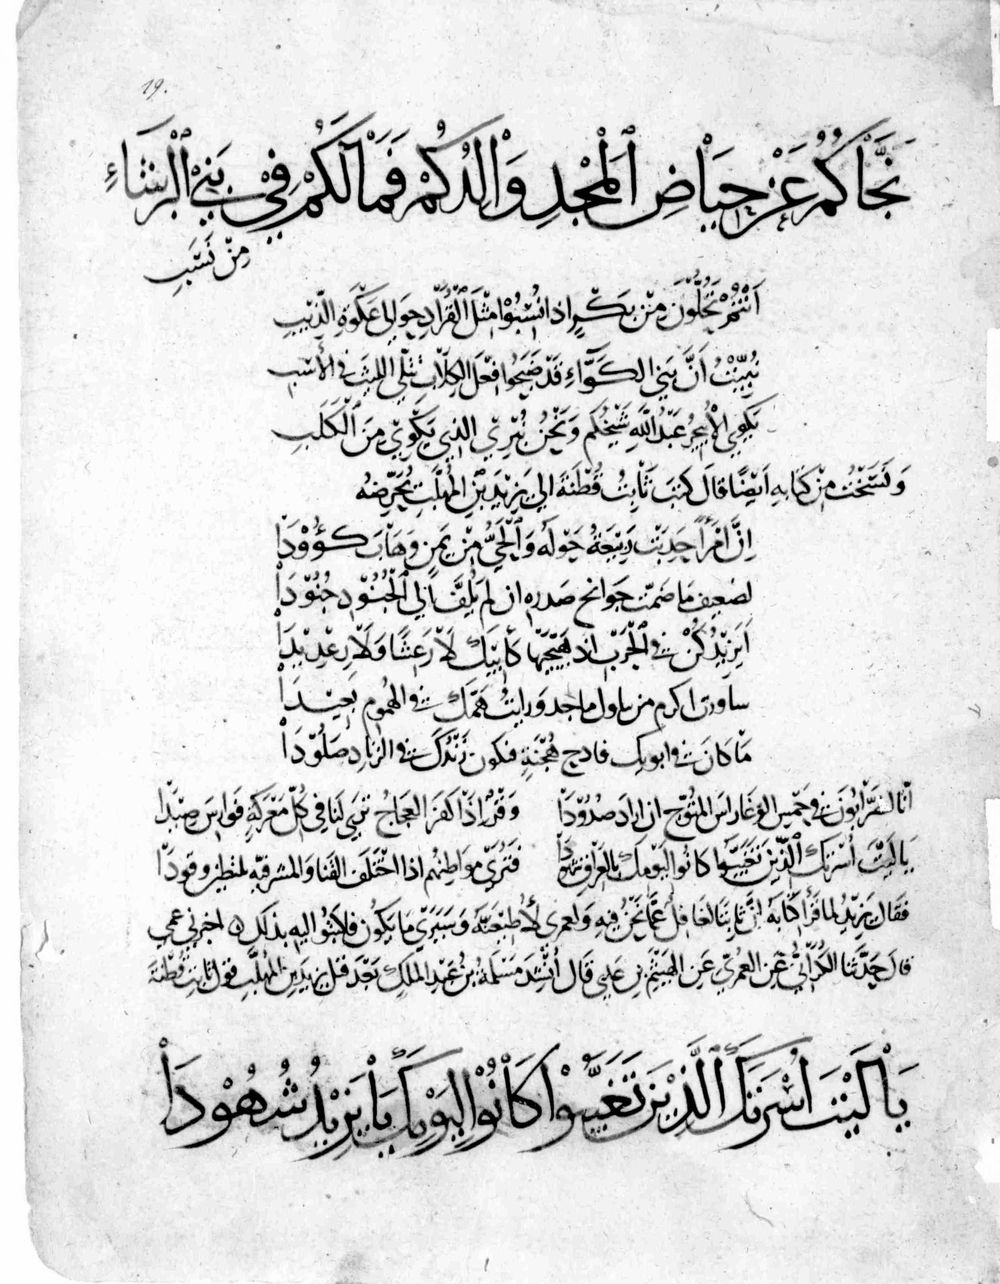 19.
نَحَّاكُمُ عَنْ حِيَاضِ ٱلْمَجْدِ وَالِدُكُمْ فَمَا لَكُمْ فِي بَنِي ٱلْبَرْشَاءِ
مِنْ نَسَبِ
اَنْتُمْ تَحُلُّوْنَ مِنْ بَكْرٍ اِذَا نُسِبُوْا مِثْلَ ٱلْقُرَادِ حَوَالِى عَكْوَةِ الذَّنَبِ
نُبِّئْتُ اَنَّ بَنِي الكَوَّاءِ قَدْ نَبَحُوا فِعْلَ الكِلَابِ تَتْلِي الليث فى الأَشَبِ
يَكْوِي الأُبَيْجِرُ عَبْدُ اللّٰهِ شَيْخُكُم وَنَحْنُ نُبْرِي الَّذِي يَكْوِيْ مِنَ ٱلْكَلَبِ
وَنَسَخْتُ مِنْ كِتَابِهِ اَيْضًا قَالَ كَتَبَ ثَابِتُ قُطْنَةَ الِى يَزِيْدَ بْنِ الْمُهَلَّبِ يُحَرِّضُهُ
اِنَّ امْرَأً حَدِبَتْ رَبِيْعَةُ حَوْلَهُ وَٱلْحَىُّ مِنْ يَمَنٍ وَهَابَ كَؤُوْدَا
لضعيف مَا ضمّت جَوانح صَدره ان لم يَلُفَّ اِلَى ٱلْجُنُوْدِ جُنُوْدَا
اَيَزِيْدُ كُنْ فى الْحَرْبِ اذ هَيَّجْتَهَا كَأَبِيْكَ لَا رَعِشًا وَلَا رِعْدِيْدَا
ساورت اكرم من تناول ماجد ورايتُ هَمَّكَ فى الهموم بعيدَا
مَا كانَ فى ابويك قادح هُجْنَةٍ فيكونَ زَنْدُكَ فى الزناد صَلُوْدَا
اِنّا لضرّابُونَ فى حَمَسِ الوَغَا رَاسَ المُتَوَّجِ ان اراد صُدُوْدَا وَقُرٌ اذَا كفرَ العَجَاجُ تَرَى لَنَا فِي كُلّ مَعْرَكَةٍ فوارسَ صِيْدَا
يَا لَيْتَ اُسْرَتَكَ الَّذِيْنَ تَغَيَّبُوا كانُوا ليومك بالعراق شهودا فَتَرَيْ مواطنهم اذا اختلف القَنا والمشرفيّة يلتظين وقودَا
فقال يَزِيْدُ لما قَرَأَ كِتَابَهُ اِنَّ ثابتًا لغافلٌ عمّا نَحْنُ فِيهِ ولعمرى لأُطِيْعَنَّهُ وَسَيَرَى مَا يَكُونُ فَاكْتُبُوا اليهِ بذلك ٥ اخبرنى عمى
قالَ حَدَّثَنا الكُرَانىُّ عَنِ العُمَرِي عَنِ الهَيْثَمِ بْنِ عَدِي قَالَ اُنْشِدَ مَسْلَمَةُ بْنُ عَبْدِ الملِكِ بَعْدَ قتل يزيدَ بنِ المُهَلَّبِ قولَ ثابتِ قُطْنَةَ
يَاْ لَيْتَ اُسْرَتَكَ ٱلَّذِيْنَ تَغَيَّبُوْا كَاْنُوْا لِيَوْمِكَ يَاْ يَزِيْدُ شُهُوْدَا